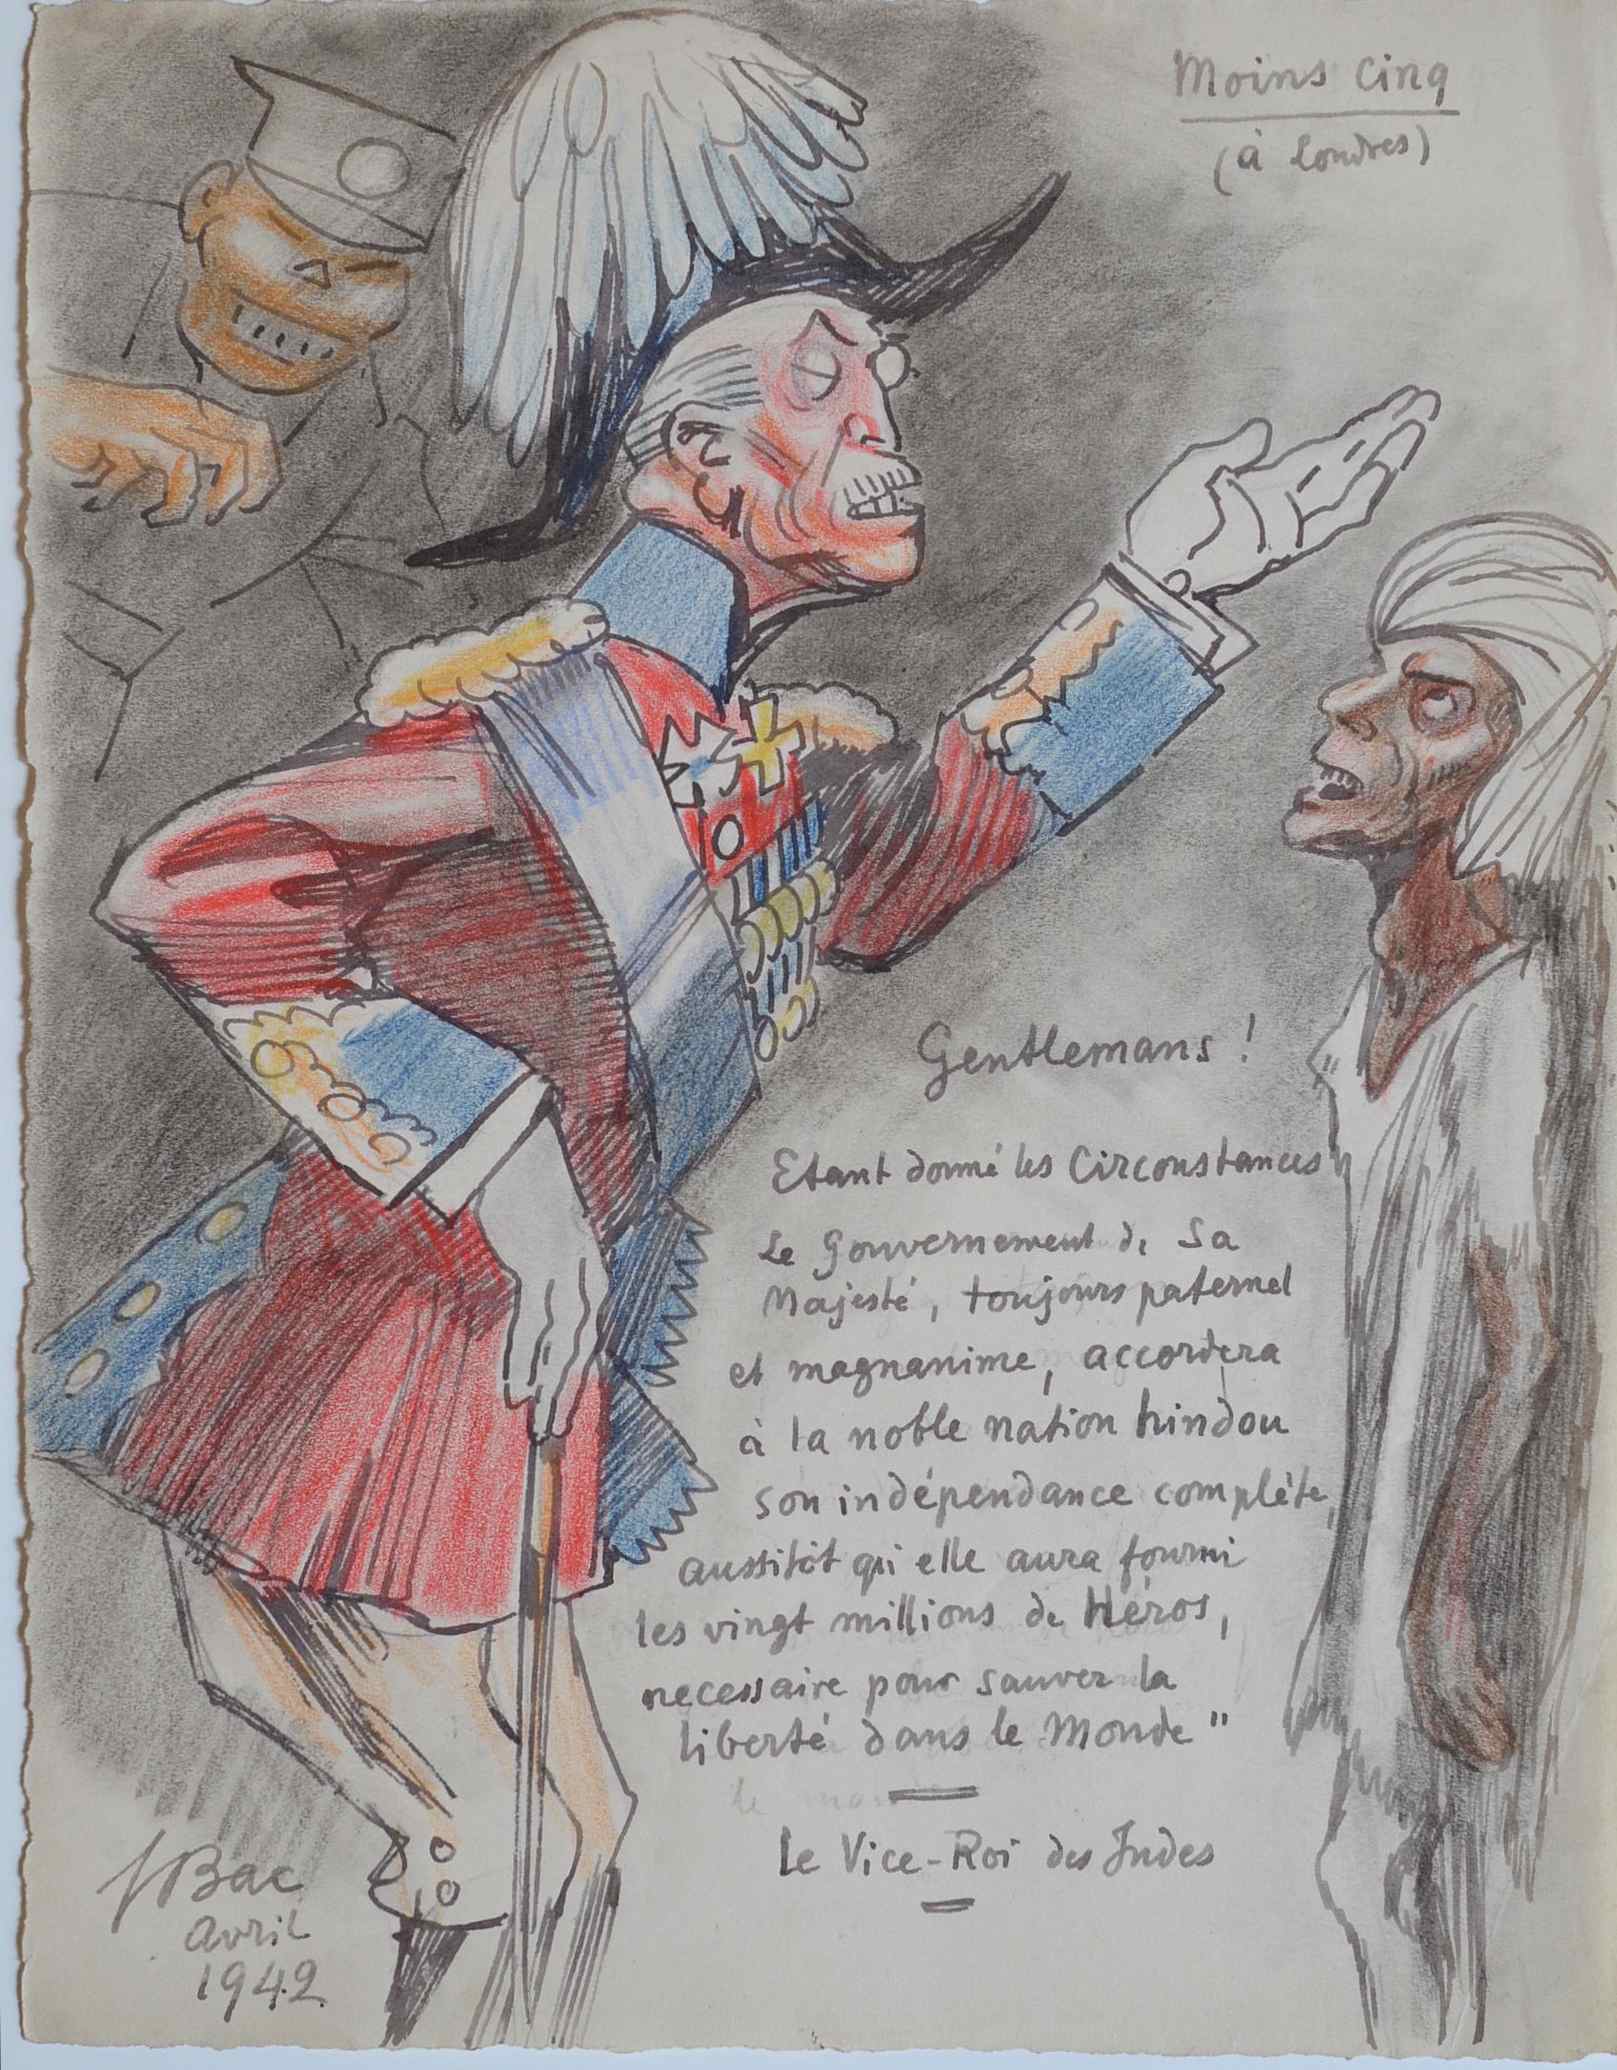 Moins Cinq
(à Londres)
Gentlemans !
Etant donné les Circonstances
Le Gouvernement de Sa
Majesté, toujours paternel
et magnanime, accordera
à la noble nation hindou
son indépendance complète,
aussitôt qu'elle aura fourni
les vingt millions de Héros,
necessaire pour sauver la
liberté dans le Monde"
Le Vice-Roi des Indes
Bac
Avril
1942